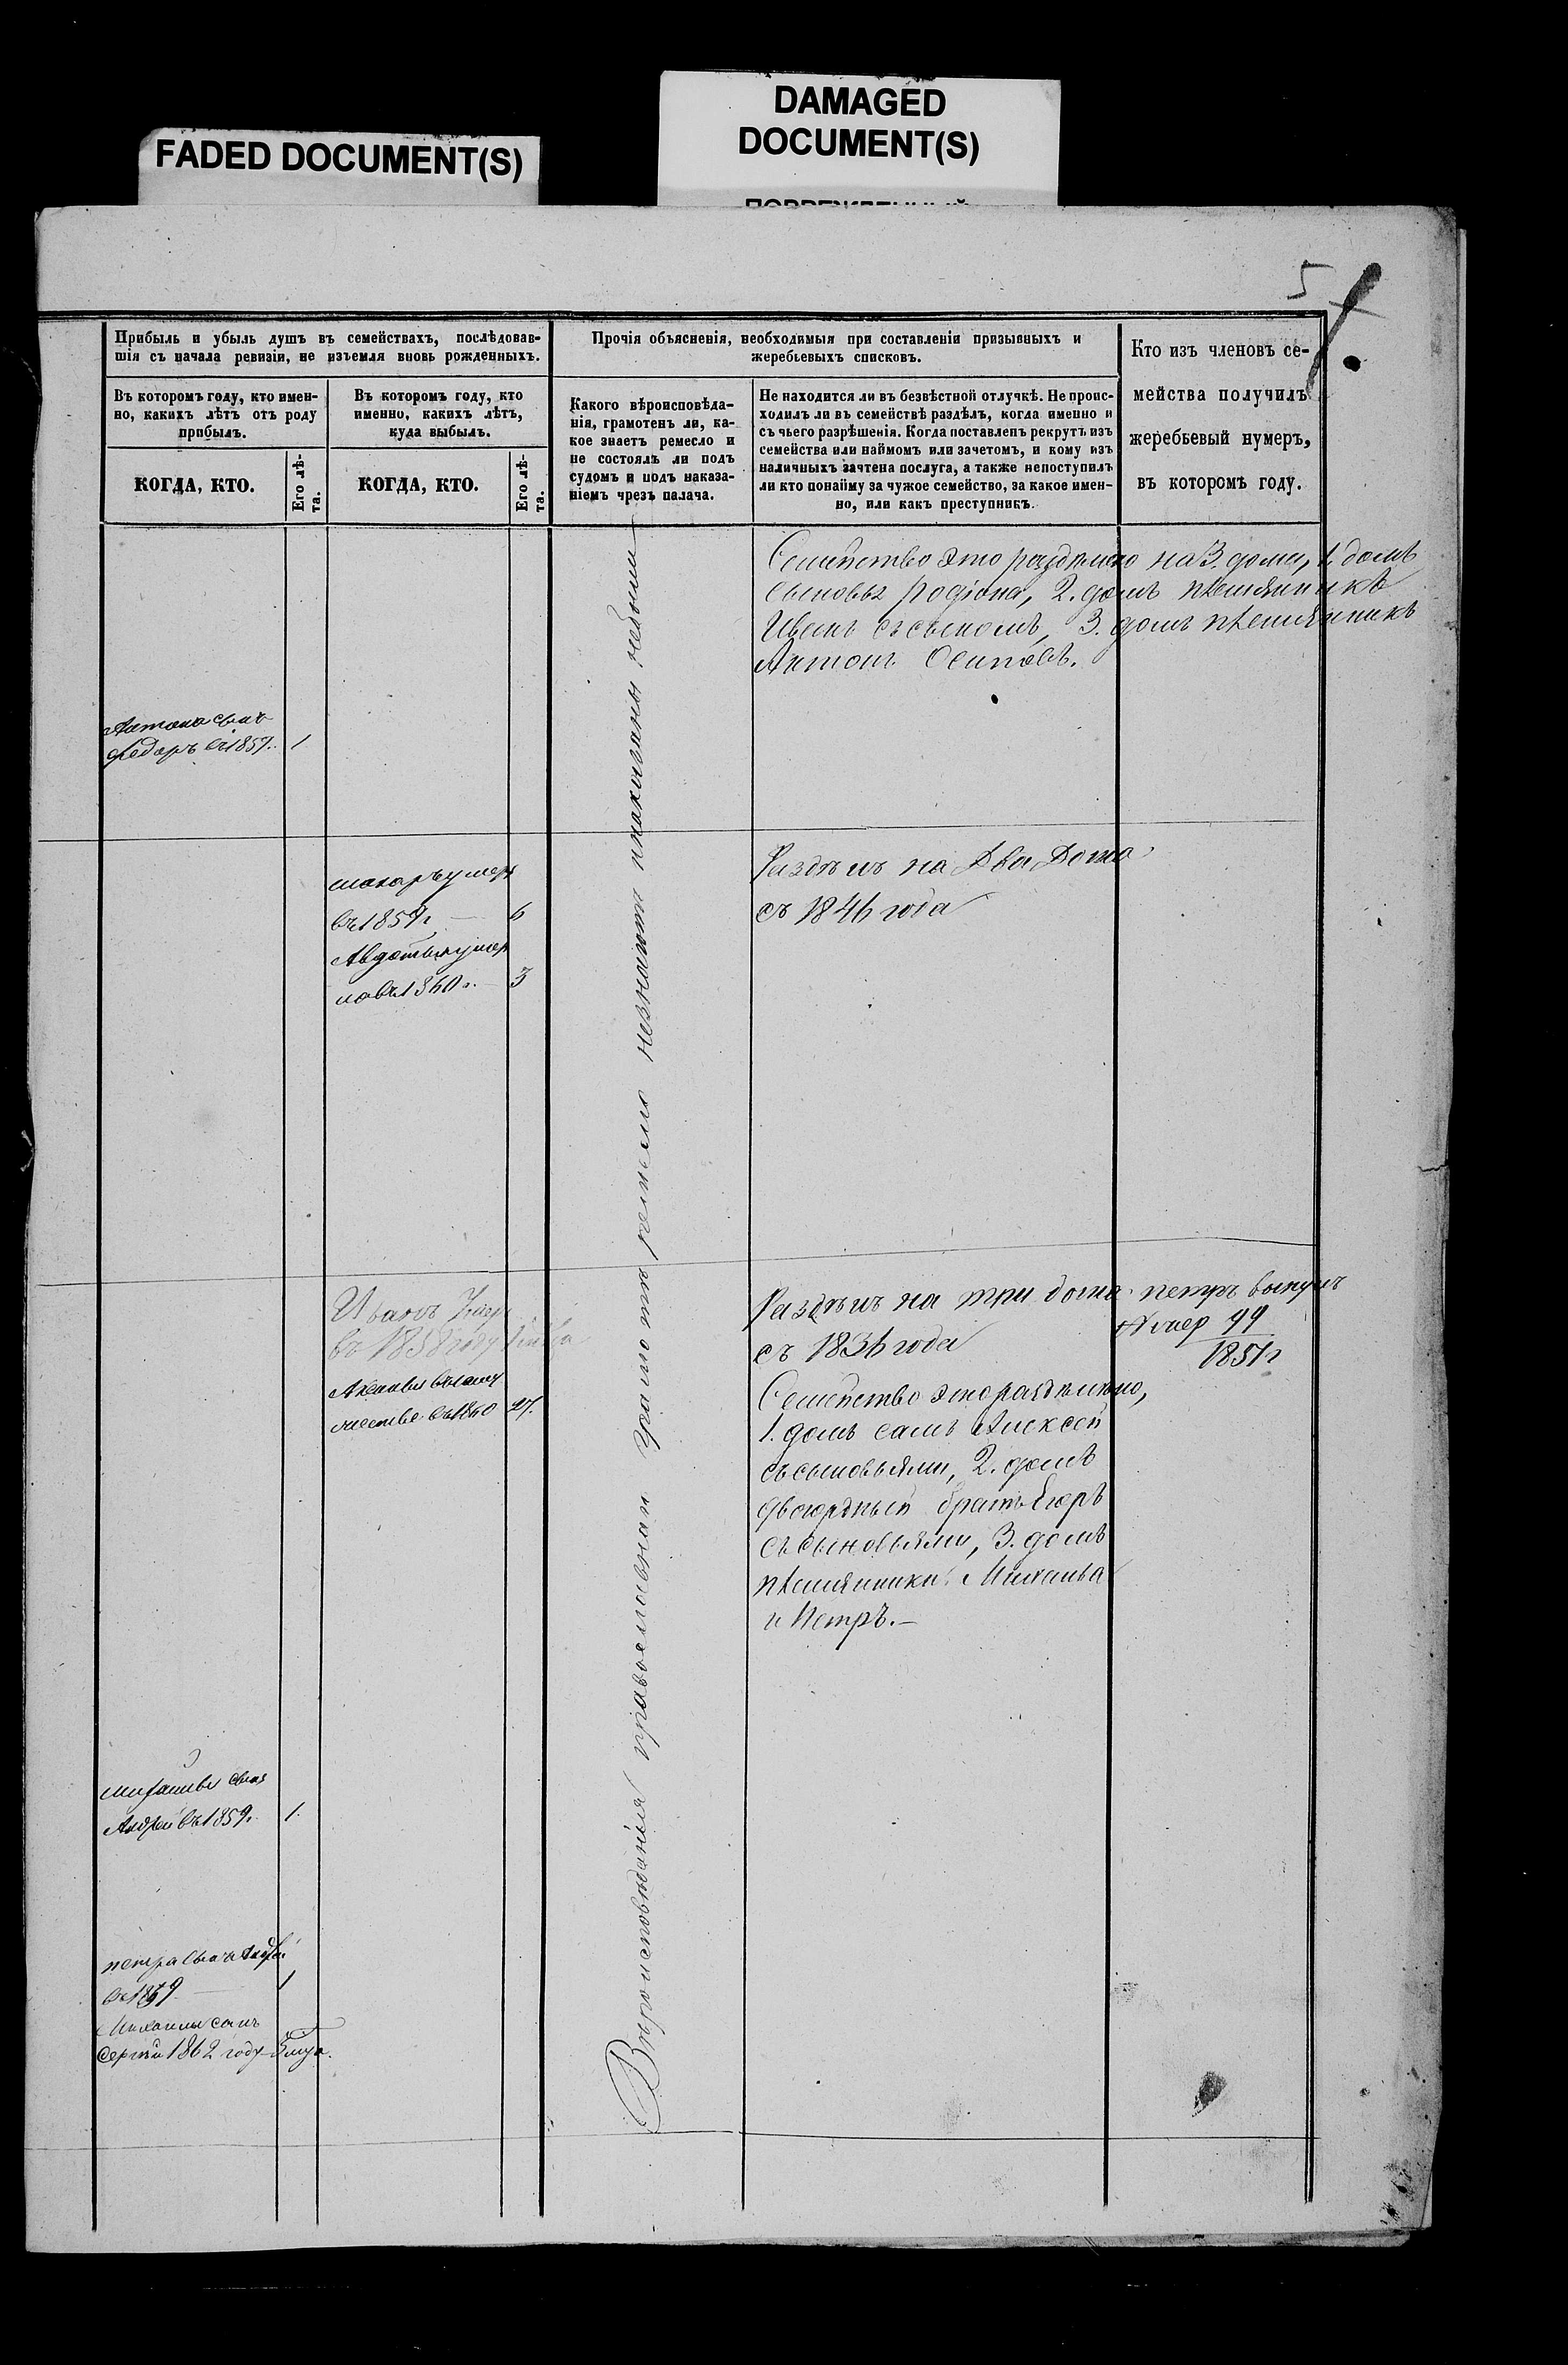 FADED DOCUMENT(S)
DAMAGED
DOCUMENT(S)
5
Прибыль и убыль душъ въ семействахъ, послѣдовав-
шія съ начала ревизіи, не изъемля вновь рожденныхъ.
Въ которомъ году, кто имен-
но, какихъ лѣтъ отъ роду
прибылъ.
КОГДА, КТО.
Его лѣ-
та.
Въ которомъ году, кто
именно, какихъ лѣтъ,
куда выбылъ.
КОГДА, КТО.
Его лѣ-
та.
Прочія объясненія, необходимыя при составленіи призывныхъ и
жеребьевыхъ списковъ.
Какого вѣроисповѣда-
нія, грамотенъ ли, ка-
кое знаетъ ремесло и
не состоялъ ли подъ
судомъ и подъ наказа-
ніемъ чрезъ палача.
Не находится ли въ безвѣстной отлучкѣ. Не проис-
ходилъ ли въ семействѣ раздѣлъ, когда именно и
съ чьего разрѣшенія. Когда поставленъ рекрутъ изъ
семейства или наймомъ или зачетомъ, и кому изъ
наличныхъ зачтена послуга, а также непоступилъ
ли кто понайму за чужое семейство, за какое имен-
но, или какъ преступникъ.
Кто изъ членовъ се-
мейства получилъ
жеребьевый нумеръ,
въ которомъ году.
Семейство это раздѣлено на 3. дома, 1. домъ
сыновья родіона, 2. домъ племянникъ
Иванъ съ сыномъ, 3. домъ племянникъ
Антонъ Осиповъ.
Антона сынъ
федоръ въ 1857. 1
макаръ умеръ
въ 1859 г. — 6
Авдотья умер
ла въ 1860 г. — 3
Раздѣлъ на Два Дома
съ 1846 года
Вѣроисповѣданія православнаго грамотѣ ремесло незнаютъ инаказаны небыли
Иванъ Умеръ
въ 1858 году
въ 1860 27.
Раздѣлъ на три дома
съ 1836 года
Семейство это раздѣлено,
1. домъ самъ Алексей
съ сыновьями, 2. домъ
двоюрдный братъ Егоръ
съ сыновьями, 3. домъ
племянники Михаила
и Петръ. —
петръ вынулъ
Нумер 99
1851 г
михаила сынъ
Андрей въ 1859. 1.
петра сынъ Андрей
въ 1859 — 1
Михаилы сынъ
Сергѣй 1862 году